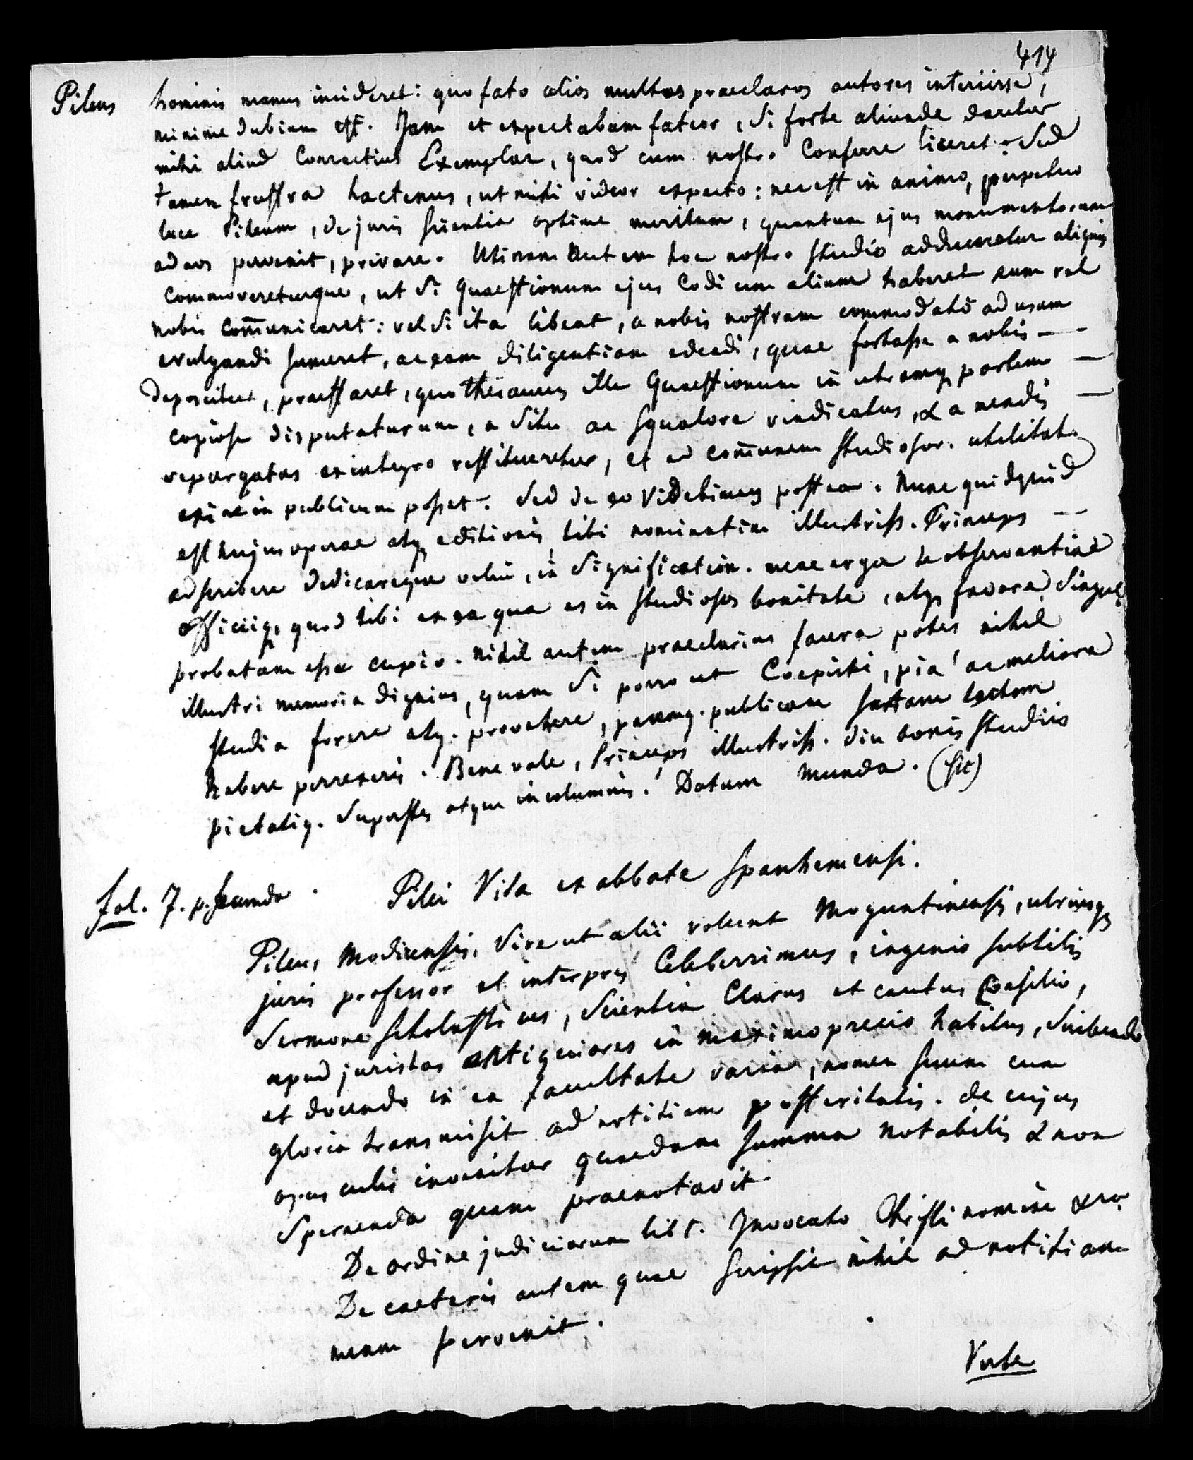 414
Pileus hominis manus incideret: quo fato alios multos praeclaros autores interiisse,
minime dubium est. Jam et expectabam fateor, si forte aliunde daretur
mihi aliud Correctius Exemplar, quod cum nostro conferre liceret. Sed
tamen frustra hactenus, ut mihi videor expecto: nec est in animo, perpetuo
luce Pileum, de juris scientia optime meritum, quantum ejus monumentorum
ad nos pervenit, privare. Utinam autem hoc nostro studio adduceretur aliquis
commovereturque, ut si Quaestionum ejus Codicum alium haberet eum vel
nobis com̅unicaret: vel si ita libeat, a nobis nostrum commodatū ad usum
evulgandi sumeret, ac eam diligentiam edendi, quae fortasse a nobis —
deposcitur, praestaret, quo thesaurus ille Quaestionum in utramq; partem —
copiose disputatarum, a situ ac squalore vindicatus, & a mendis —
repurgatus ex integro restitueretur, et ad com̅unem studiosor. utilitatē
exire in publicum posset. Sed de eo videbimus postea. Nunc quidquid
est hujus operae atq; editionis tibi nominatim illustriss. Princeps —
adscribere dedicareque volui, in signification. meae erga te observantiae
officiiq; quod tibi ex ea qua es in studiosos bonitate, atq; favore singul.
probatam esse cupio. Nihil autem praeclarius facere potes nihil
illustri memoria dignius, quam si porro ut Coepisti, pia ac meliora
studia fovere atq. provehere, pacemq. publicam sartam tectam
habere perrexeris. Bene vale, Princeps illustriss. diu bonis studiis
pietatiq. superstes atque incolumis! Datum Munda. (sic)
fol. 7. p. secunda. Pilei Vita ex abbate Spanhemensi.
Pileus Modicensis, sive ut alii volunt Moguntinensis, utriusq;
juris professor et interpres Celeberrimus, ingenio subtilis
Sermone scholasticus, Scientia Clarus et cautus Consilio,
apud juristas antiquiores in maximo precio habitus, scribendo
et docendo in ea facultate varia, nomen suum cum
gloria transmisit ad notitiam posteritatis. de cujus
opusculis invenitur quaedam Summa notabilis & non
Spernenda quam praenotavit.
De ordine judiciorum lib 1. Invocato Christi nomine
De caeteris autem quae scripsit nihil ad notitiam
meam pervenit.
Verte